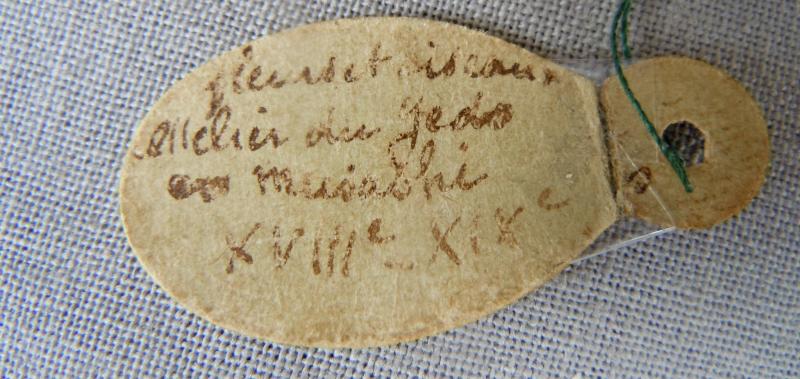 fleurs et oiseaux
Atelier du Yedo
en Musashi
XVIIIe_XIXe